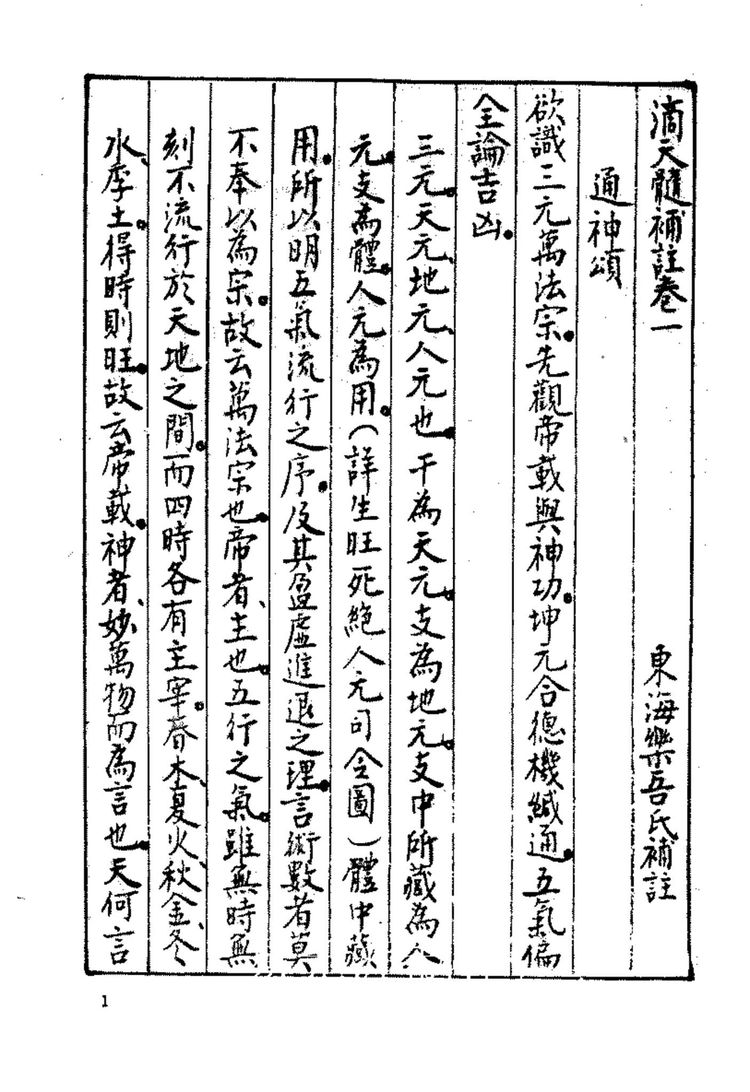 滴天髓補註卷一
東海樂吾氏補註
通神頌
欲識三元萬法宗。先觀帝載與神功。坤元合德機緘通。五氣偏
全論吉凶。
三元。天元、地元、人元也。干為天元。支為地元。支中所藏為人
元。支為體。人元為用。(詳生旺死絕人元司令圖)體中藏
用。所以明五氣流行之序。及其盈虛進退之理。言術數者莫
不奉以為宗。故云萬法宗也。帝者、主也。五行之氣。雖無時無
刻不流行於天地之間。而四時各有主宰。春木、夏火、秋金、冬
水、季土得時則旺。故云帝載。神者、妙萬物而為言也。天何言
1